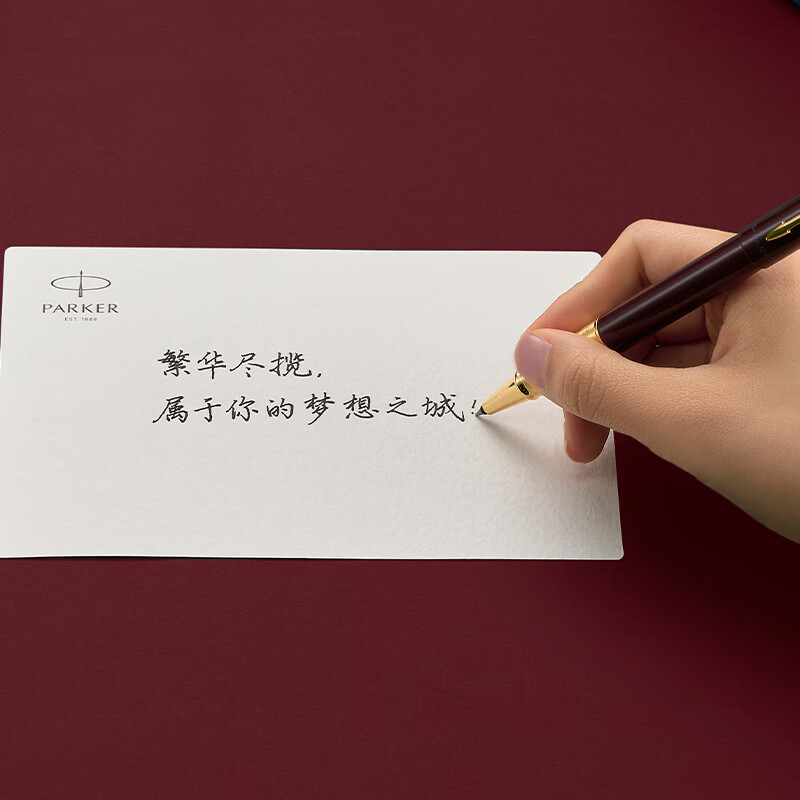 PARKER
EST. 1888
繁华尽揽,
属于你的梦想之城!